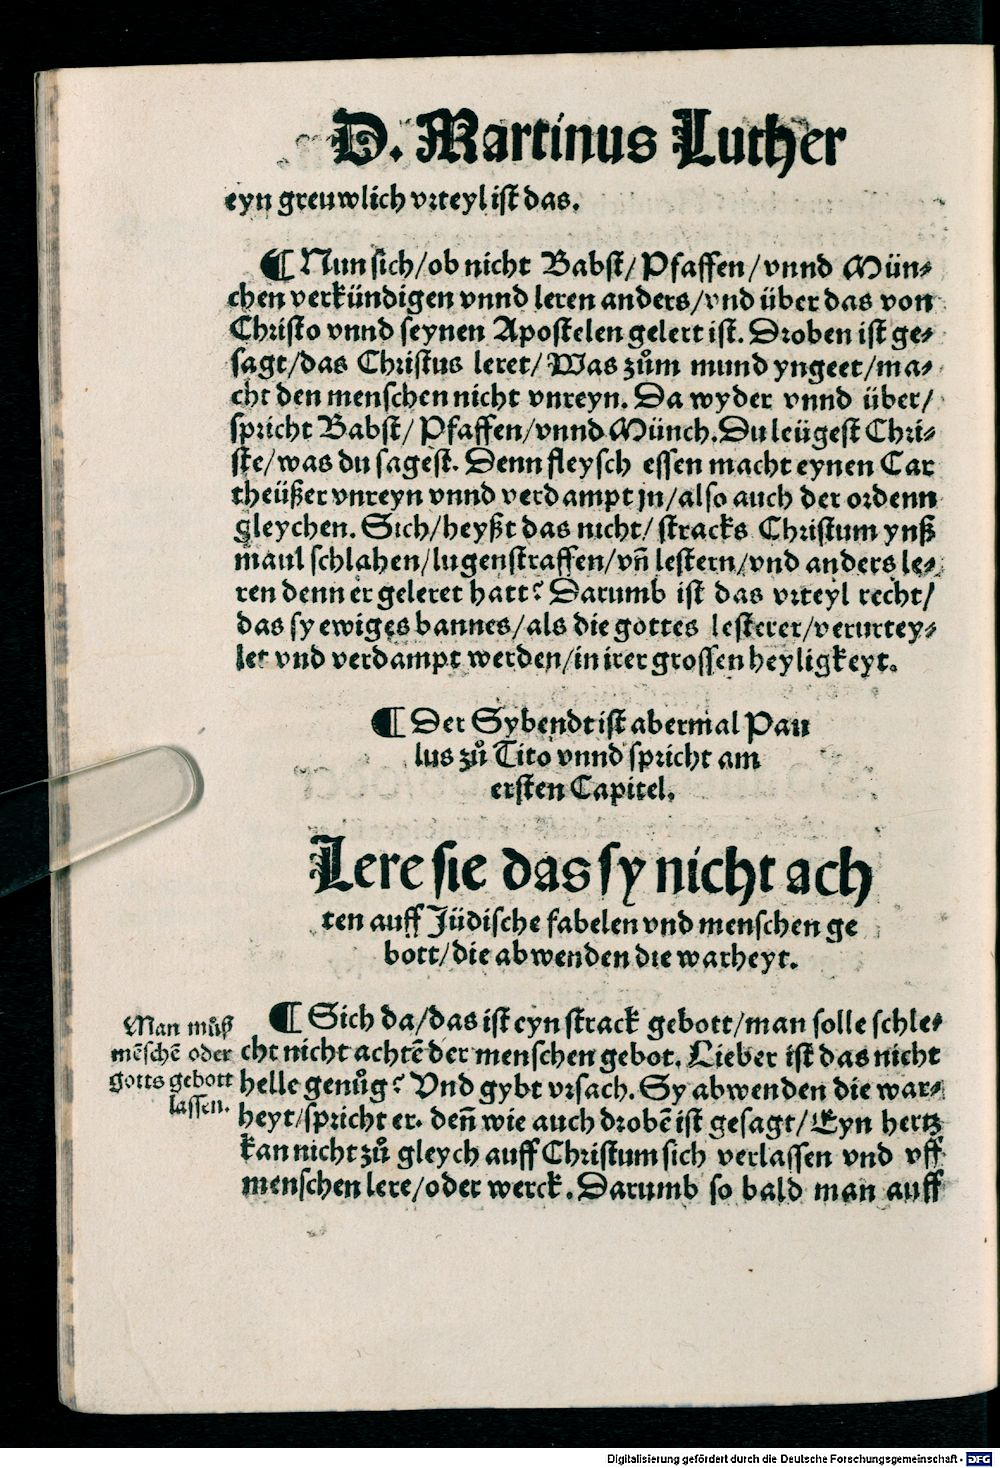 D. Martinus Luther
eyn greuwlich vrteyl ist das.
¶ Nun sich/ob nicht Babst/Pfaffen/vnnd Mün⸗
chen verkündigen vnnd leren anders/vnd über das von
Christo vnnd seynen Apostelen gelert ist. Droben ist ge⸗
sagt/das Christus leret/Was zům mund yngeet/ma⸗
cht den menschen nicht vnreyn. Da wyder vnnd über/
spricht Babst/Pfaffen/vnnd Münch. Du leügest Chri⸗
ste/was du sagest. Denn fleysch essen macht eynen Car
theüßer vnreyn vnnd verdampt jn/also auch der ordenn
gleychen. Sich/heyßt das nicht/stracks Christum ynß
maul schlahen/lugenstraffen/vn̄ lestern/vnd anders le⸗
ren denn er geleret hatt? Darumb ist das vrteyl recht/
das sy ewiges bannes/als die gottes lesterer/verurtey⸗
let vnd verdampt werden/in irer grossen heyligkeyt.
¶ Der Sybendt ist abermal Pau
lus zů Tito vnnd spricht am
ersten Capitel.
Lere sie das sy nicht ach
ten auff Jüdische fabelen vnd menschen ge
bott/die abwenden die warheyt.
¶ Sich da/das ist eyn strack gebott/man solle schle⸗
cht nicht achtē der menschen gebot. Lieber ist das nicht
helle genůg? Vnd gybt vrsach. Sy abwenden die war⸗
heyt/spricht er. den̄ wie auch drobē ist gesagt/Eyn hertz
kan nicht zů gleych auff Christum sich verlassen vnd vff
menschen lere/oder werck. Darumb so bald man auff
Man můß
mēschē oder
gotts gebott
lassen.
Digitalisierung gefördert durch die Deutsche Forschungsgemeinschaft - DFG